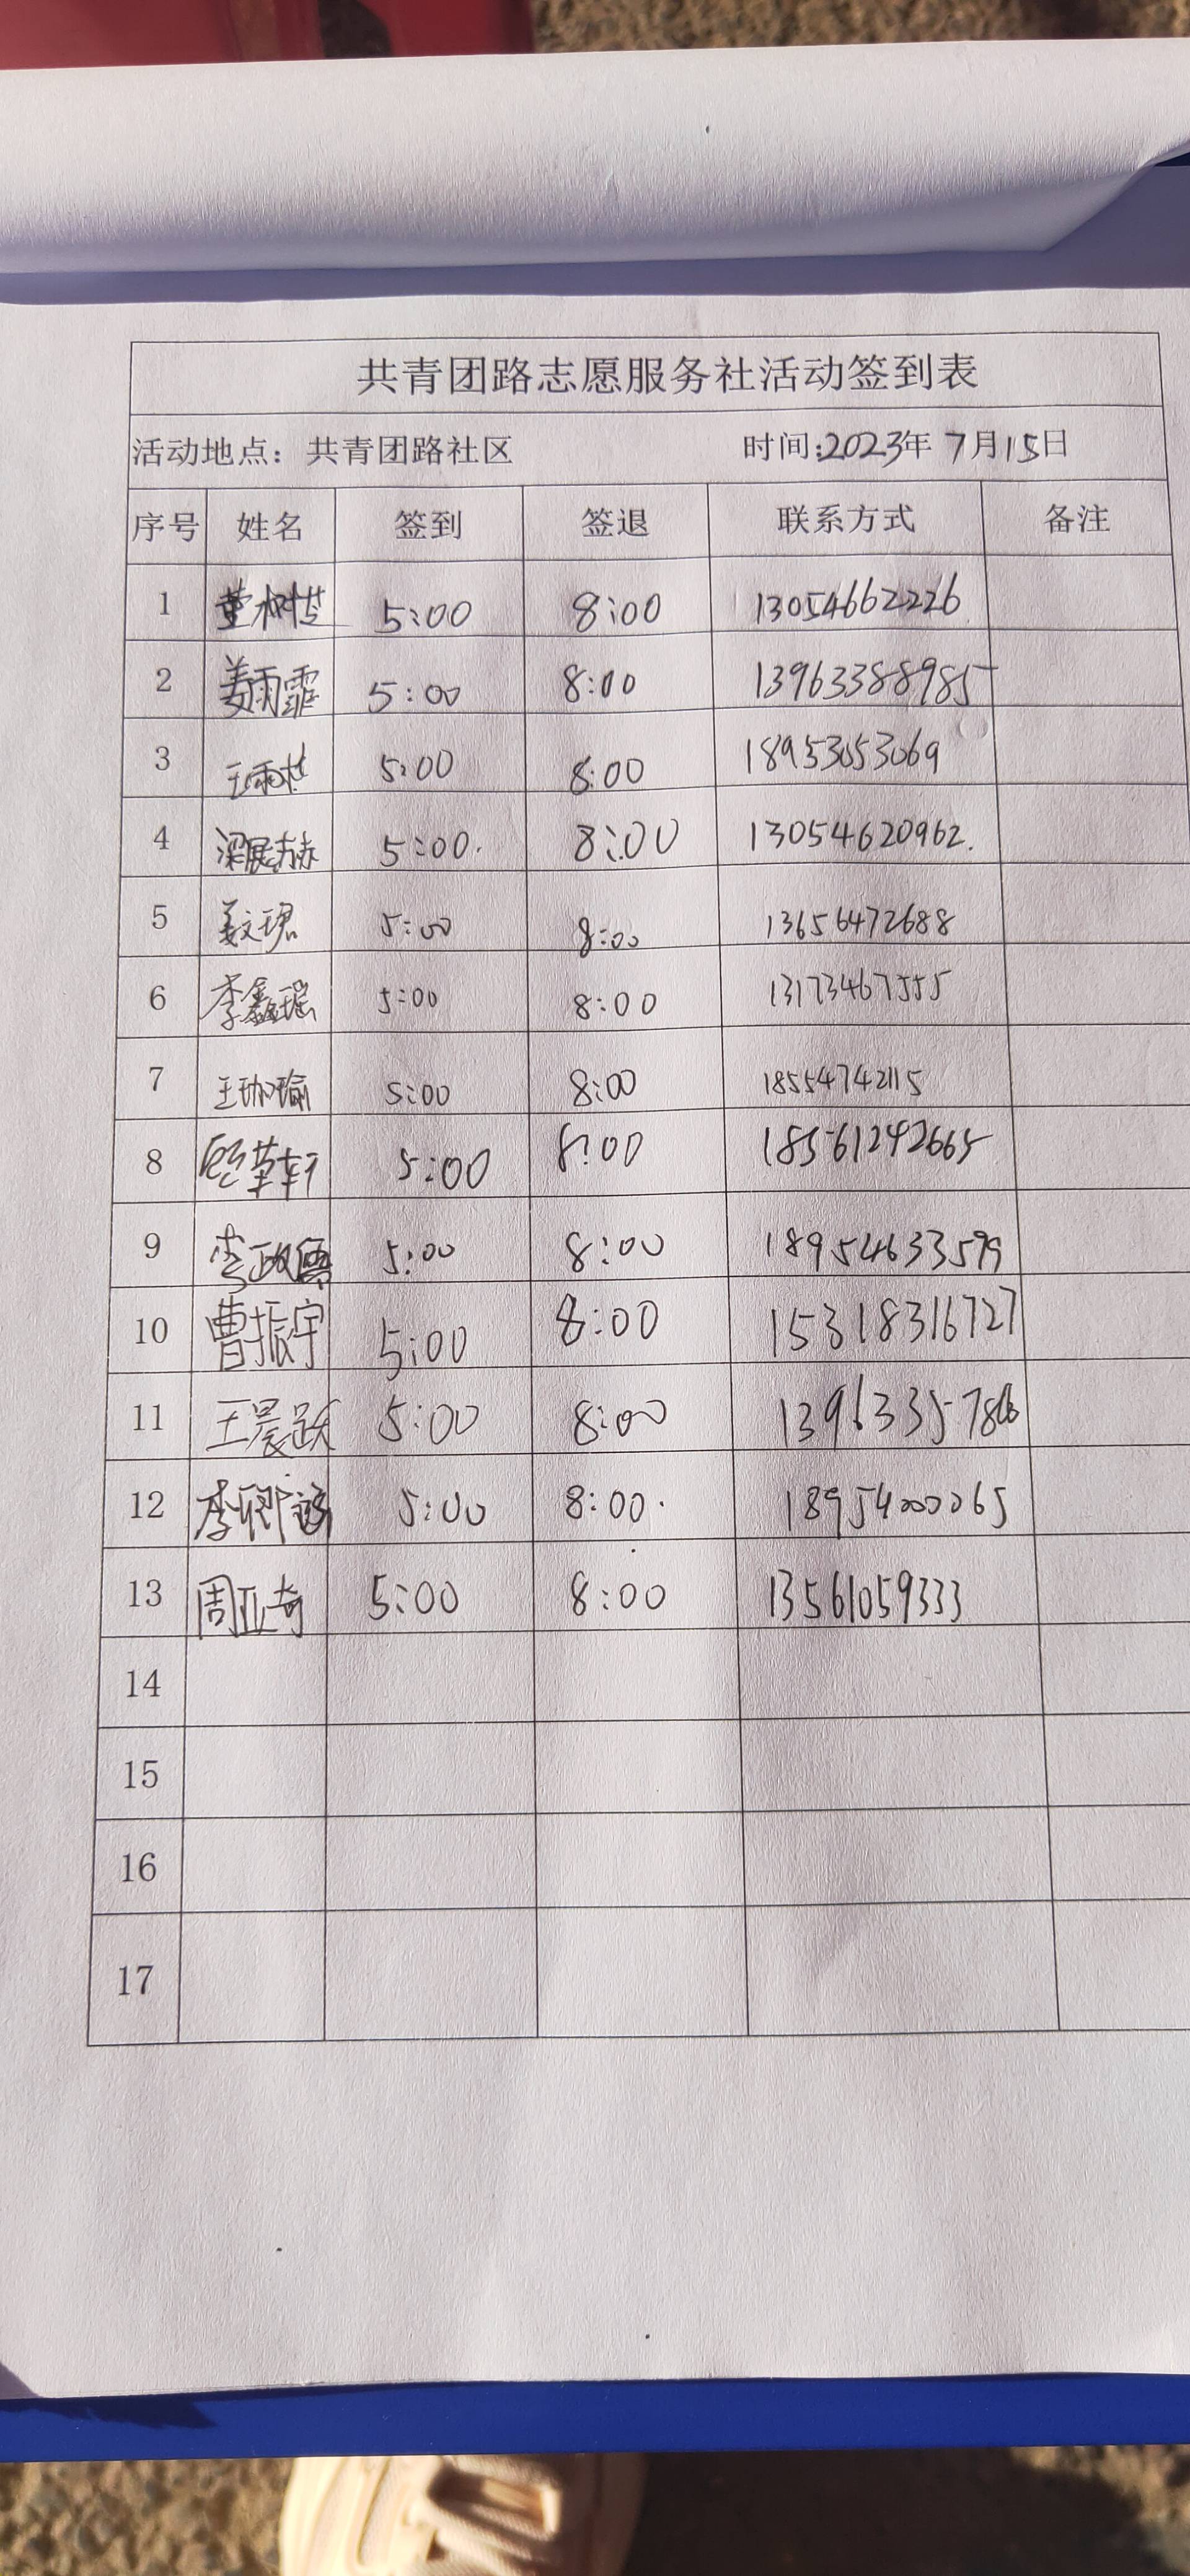 共青团路志愿服务社活动签到表
活动地点：共青团路社区 时间:2023年7月15日
序号 姓名 签到 签退 联系方式 备注
1 5:00 8:00 13054662226
2 姜雨霏 5:00 8:00 13963388985
3 5:00 8:00 18953053069
4 5:00. 8:00 13054620962.
5 姜文珺 5:00 8:00 13656472688
6 李鑫瑶 5:00 8:00 13173467555
7 王珈瑜 5:00 8:00 18554742115
8 5:00 8:00 18561242665
9 5:00 8:00 18954633599
10 曹振宇 5:00 8:00 15318316727
11 王晨跃 5:00 8:00
12 5:00 8:00. 18954000065
13 周亚奇 5:00 8:00 13561059333
14
15
16
17